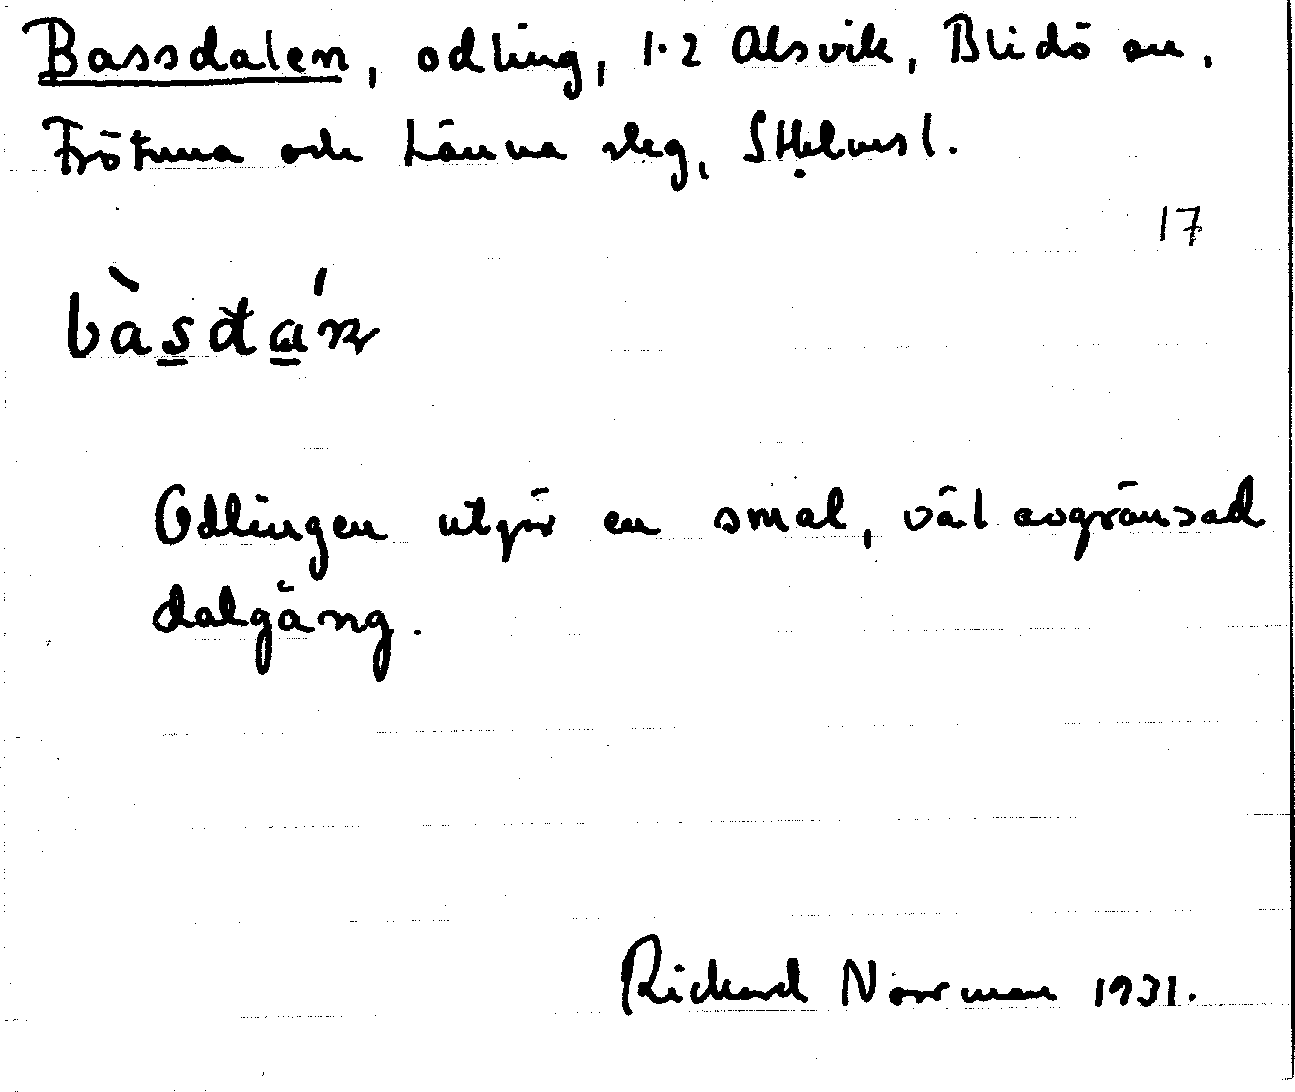 Bassdalen, odling, 1-2 Alsvik, Blidö sn,
Frötuna och Länna skg, Sthlms l.
17
bàsdán
Odlingen utgör en smal, väl avgränsad
dalgång.
Rickard Norrman 1931.